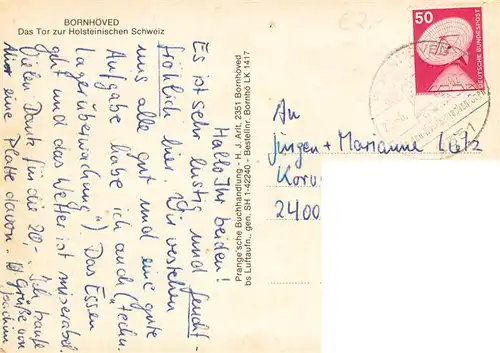 BORNHÖVED
Das Tor zur Holsteinischen Schweiz
Hallo Ihr beiden!
Es ist sehr lustig und feucht-
fröhlich hier. Wir verstehen
uns alle gut und eine gute
Aufgabe habe ich auch (techn.
Lagerüberwachung"). Das Essen
gut und das Wetter ist miserabel.
Vielen Dank für die 20,- Ich kaufe
mir eine Platte davon. Grüße von
Joachim
Prange'sche Buchhandlung - H. J. Arlt, 2351 Bornhöved
bs Luftaufn., gen. SH 1-42240 - Bestellnr. Bornhö LK 1417
€2,-
50
DEUTSCHE BUNDESPOST
An
Jürgen + Marianne
2400